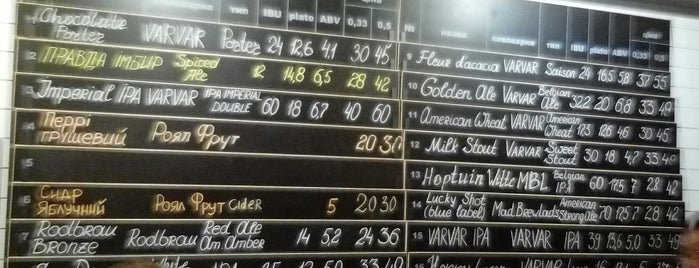 ціна
назва пивоварня тип IBU plato ABV 0,33 0,5
1 Chocolate Porter VARVAR Porter 24 12,6 4,1 30 45
2 ПРАВДА ІМБИР Spiced Ale 12 14,8 6,5 28 42
3 Imperial IPA VARVAR IPA IMPERIAL DOUBLE 60 18 6,7 40 60
4 Перрі грушевий Роял Фрут 20 30
5
6 Сидр Яблучний Роял Фрут Cider 5 20 30
7 Rodbrau Bronze Rodbrau Red Ale Am Amber 14 5,2 24 36
ціна
№ назва пивоварня тип IBU plato ABV 0,33 0,5
9 Fleur d'acacia VARVAR Saison 24 16,5 5,8 37 55
10 Golden Ale VARVAR Belgian Ale 20 6,8 33 49
11 American Wheat VARVAR American Wheat 12,6 4,6 30 45
12 Milk Stout VARVAR Sweet Stout 30 18 4,7 33 49
13 Hoptuin Witte MBL Belgian IPA 60 17,5 7 28 42
14 Lucky Shot (blue label) Mad Brewlads American Strong Ale 70 17,5 7 28 42
15 VARVAR IPA VARVAR IPA 39 13,6 5,0 33 50